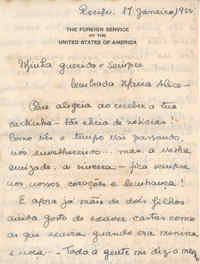 Recife, 17 Janeiro, 1950
THE FOREIGN SERVICE
OF THE
UNITED STATES OF AMERICA
Minha querida e sempre
lembrada Maria Alice -
Que alegria ao receber a tua
cartinha - tão cheia de noticias!
Como vês o tempo vai passando,
nos envelhecemos... mas a nossa
amizade, a sincera - fica sempre
nos nossos corações e lembrança!
E agora já mais de dois filhos
ainda gosto de escrever cartas como
as que escrevia quando era menina
e moça - Toda a gente me diz o meu